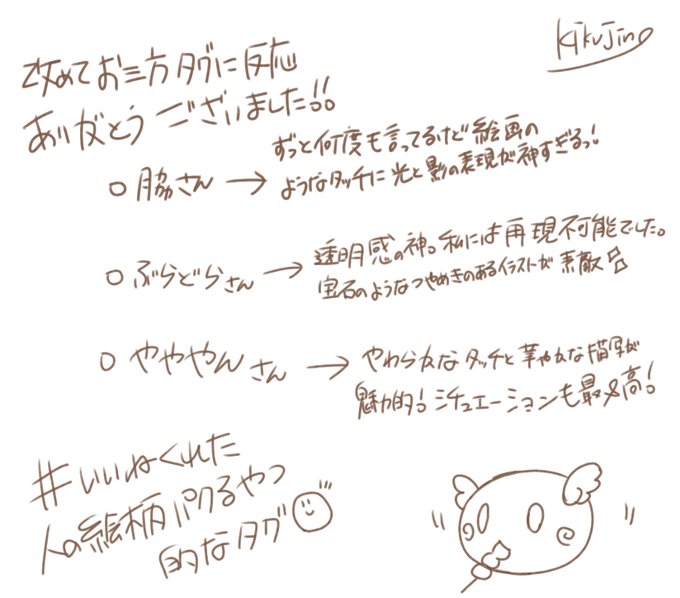 Kikujino
改めてお三方タグに反応
ありがとうございました!!
○脇さん→ずっと何度も言ってるけど絵画の
ようなタッチに光と影の表現が神すぎるっ!
○ぶらどらさん→透明感の神。私には再現不可能でした。
宝石のようなつやめきのあるイラストが素敵
○ややややんさん→やわらかなタッチと華やかな描写が
魅力的!シチュエーションも最&高!
#いいねくれた
人の絵柄パクるやつ
的なタグ